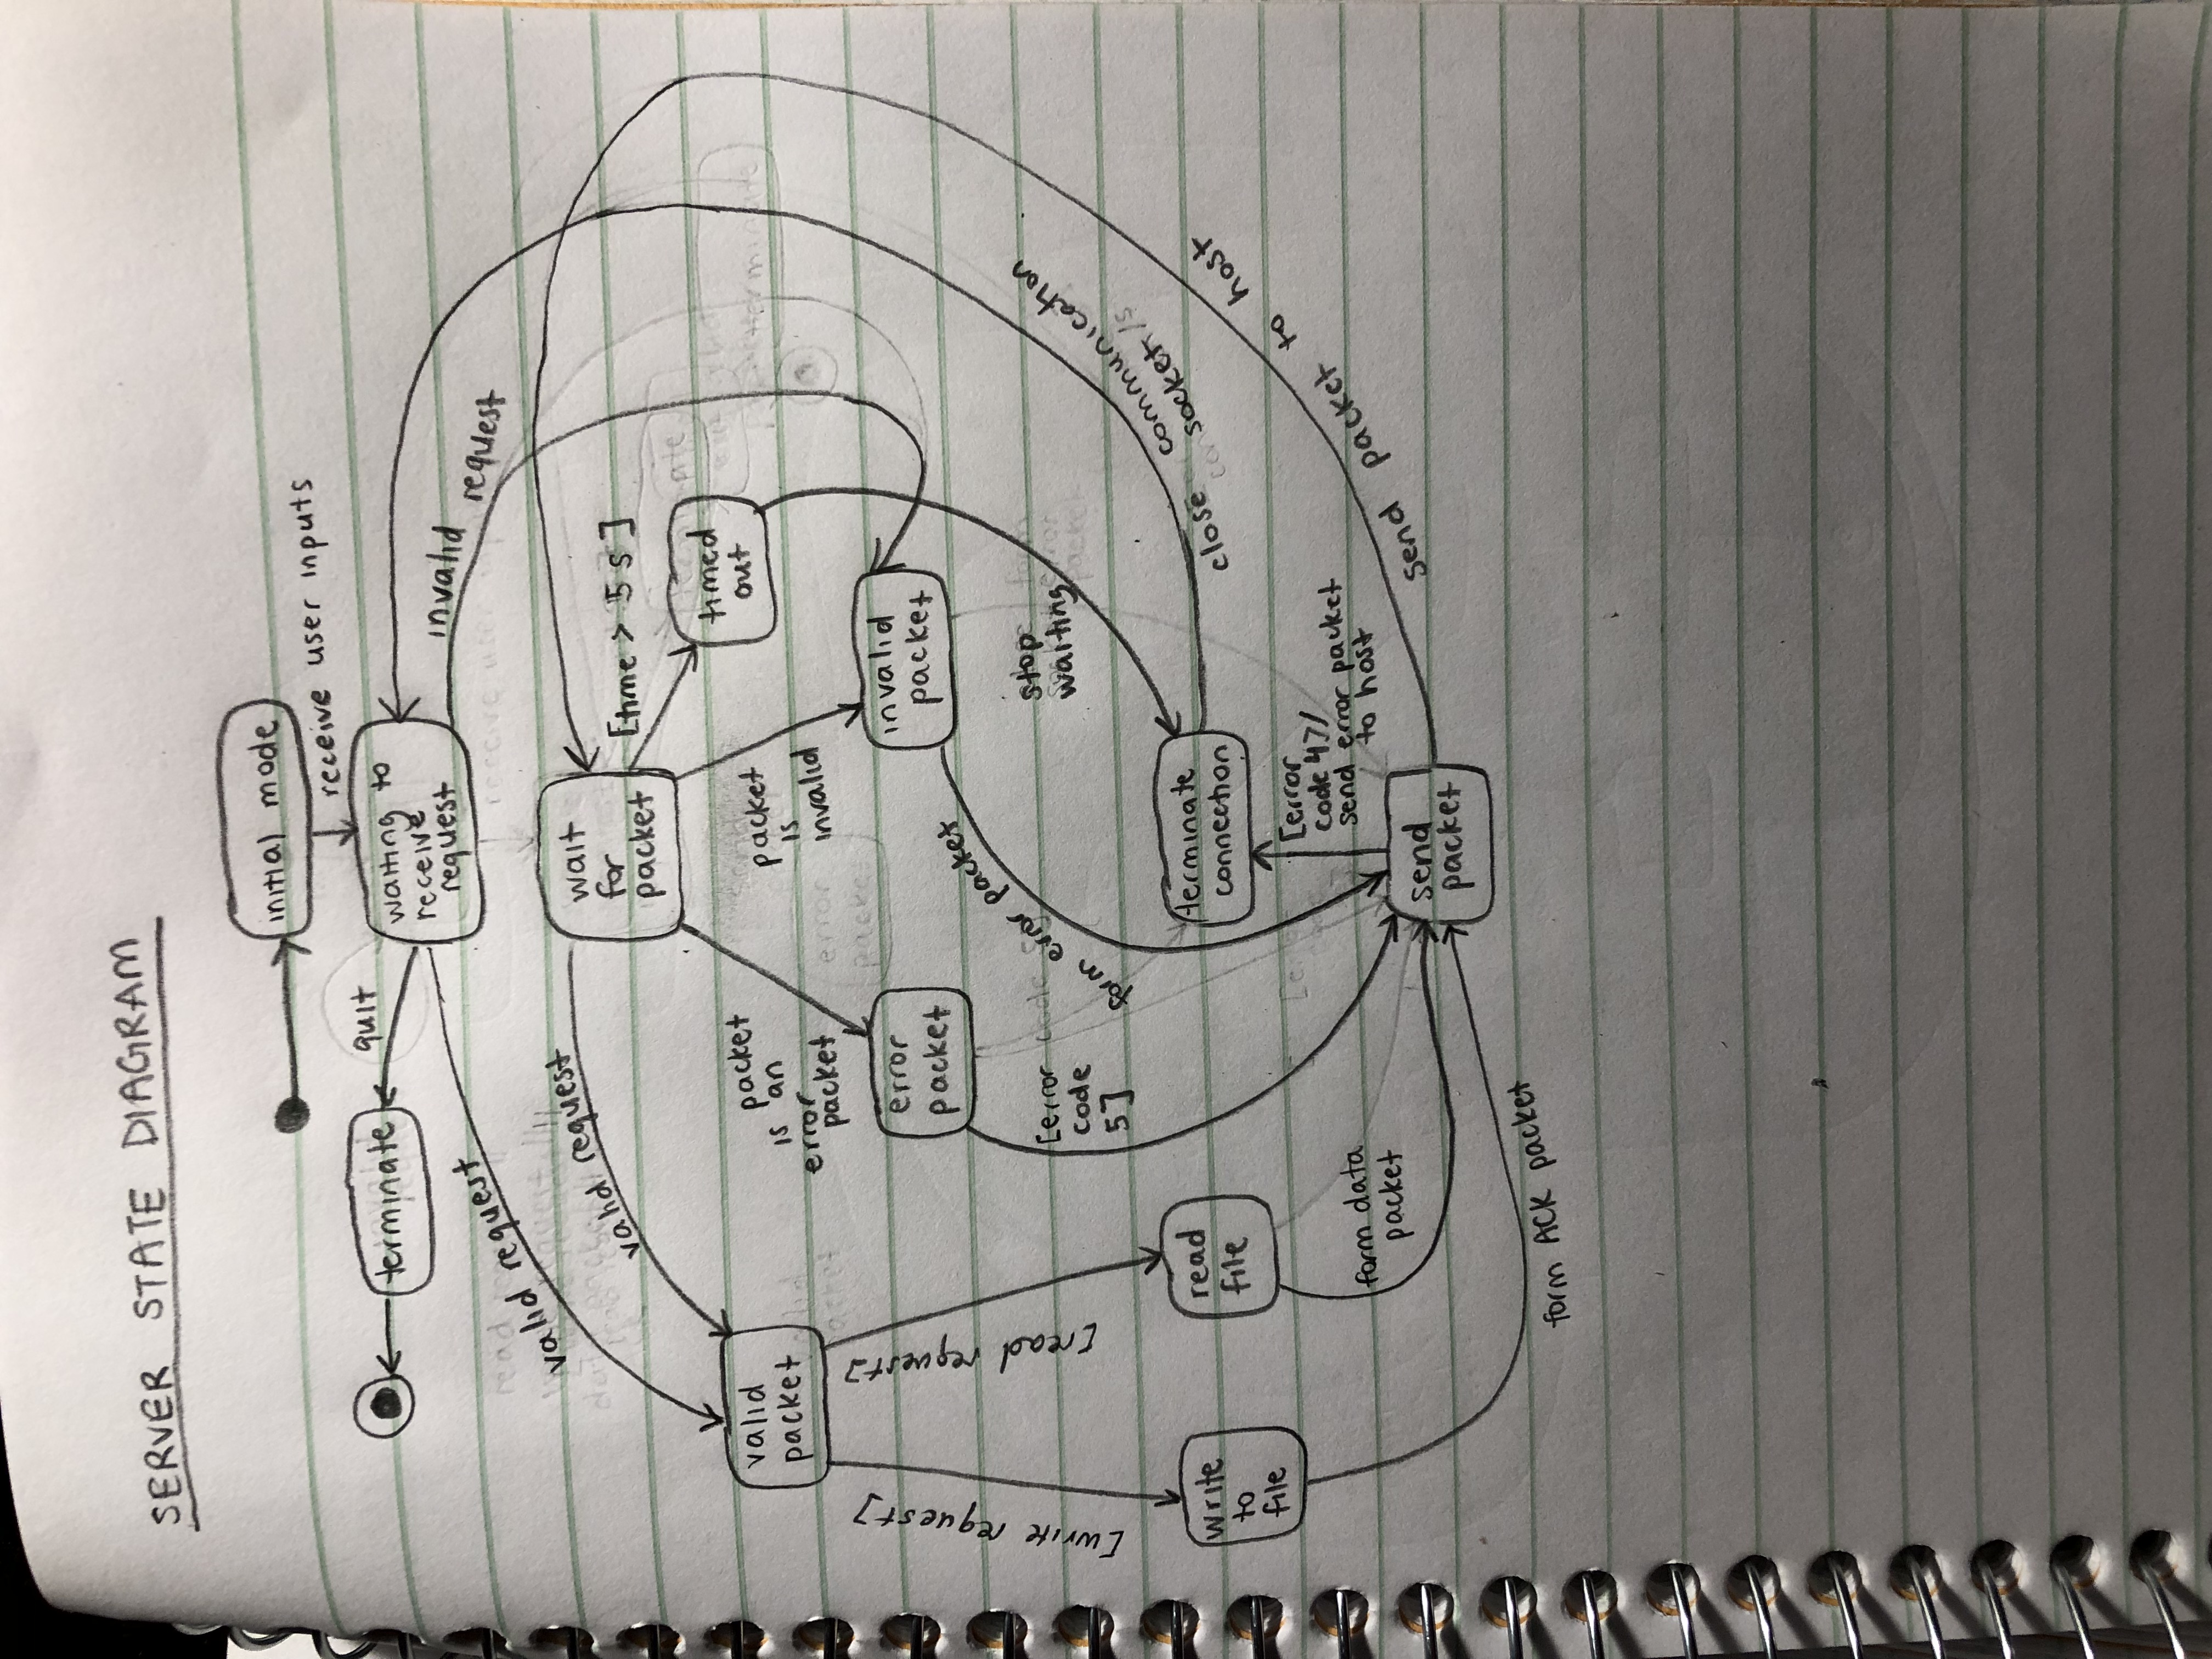 SERVER STATE DIAGRAM
initial mode
receive user inputs
quit
terminate
waiting to
receive
request
invalid
request
valid request
valid request
wait
for
packet
[time > 5 s]
timed
out
valid
packet
packet
is an
error
packet
packet
is
invalid
error
packet
invalid
packet
[write request]
[read request]
[error
code
5]
form error packet
stop
waiting
close communication
socket/s
write
to
file
read
file
terminate
connection
[error
code 4]/
send error packet
to host
form data
packet
send
packet
send packet to host
form ACK packet